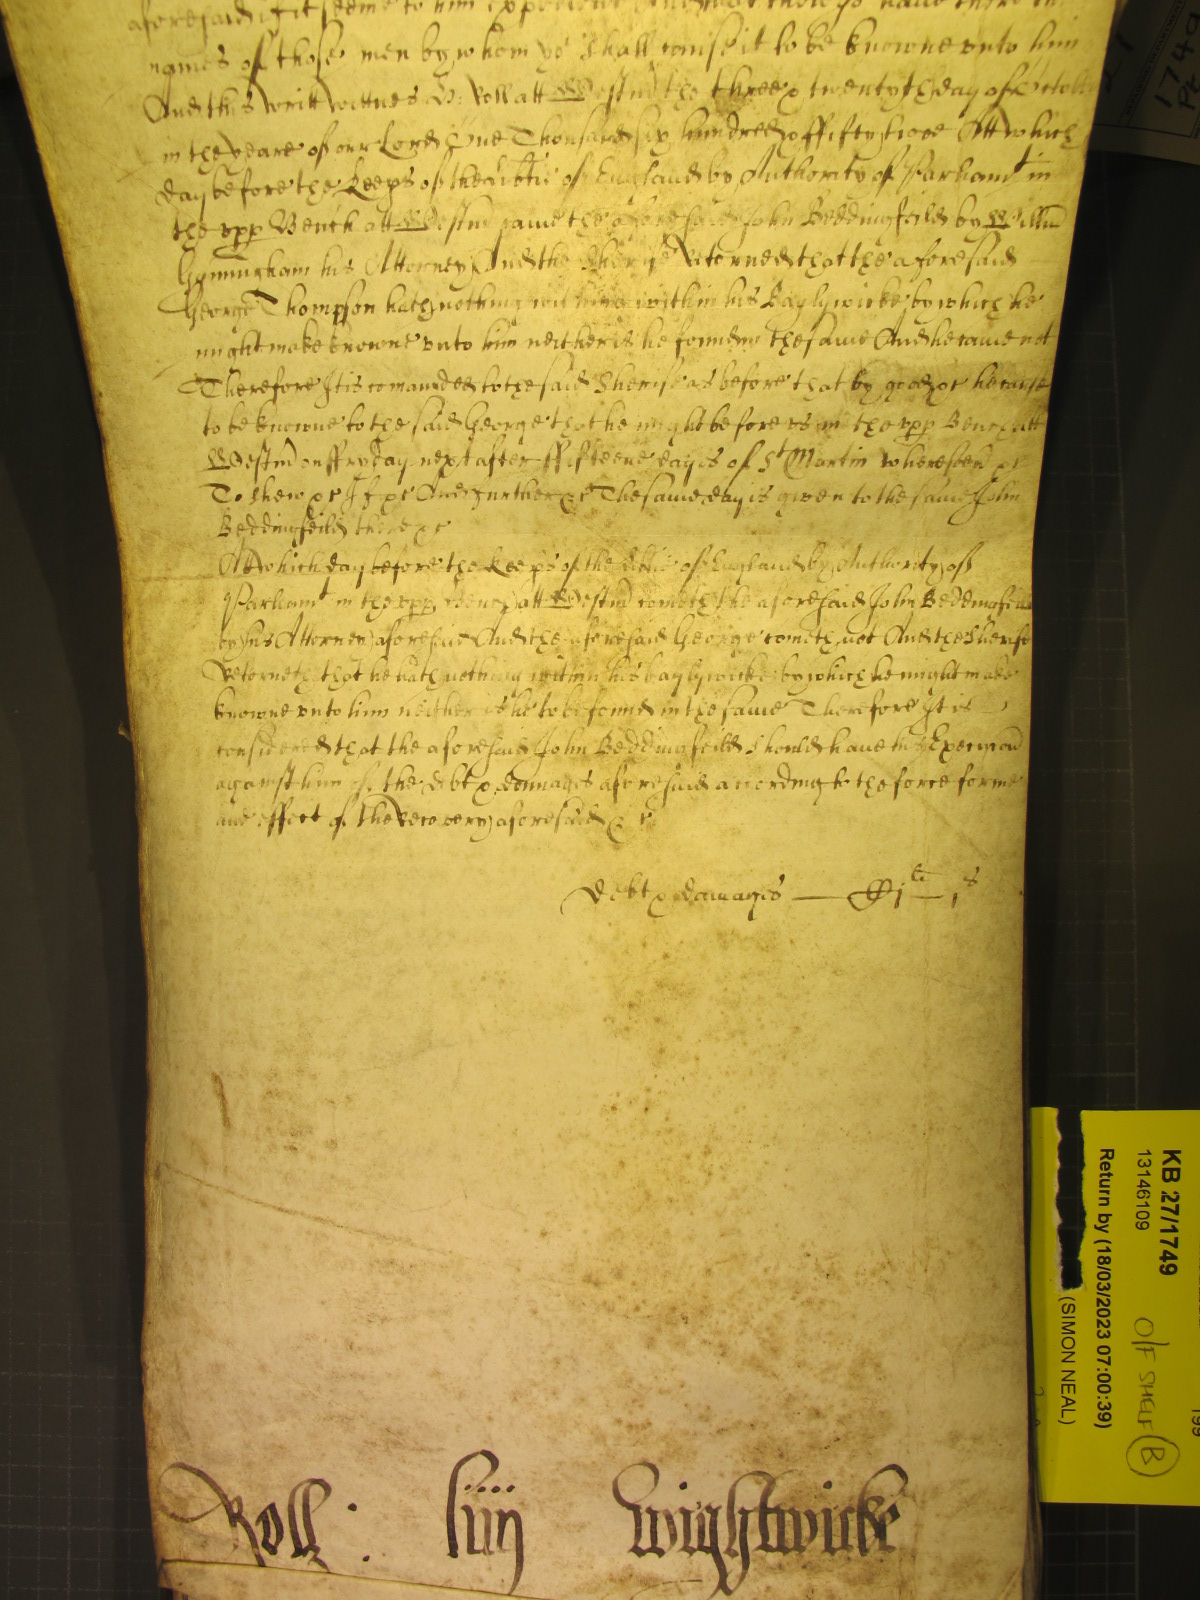 aforesaid if it seeme to him expedient And
names of those men by whom yo Shall cause it to be knowne unto him
And this writt wittnes H: Roll att Westm the three & twentyth day of October
in the yeare of our Lord One Thousand six hundred & ffifty three Att which
day before the Keeps of the libtie of England by Authority of Parliamt in
the upp Bench att Westm came the aforesaid John Beddingfeild by Willm
his Attorney And the Sherife Retorned that the aforesaid
George Thompson hath nothing within his Baylywicke by which he
might make knowne unto him neither is he found in the same And he came not
Therefore It is comanded to the said Sherife as before that by good &c he cause
to be knowne to the said George that he might be before us in the upp Bench att
Westm on ffryday next after ffifteene dayes of St Martin wheresoev &c
To shew &c If &c And further &c The same day is given to the same John
Beddingfeild there &c
Att which day before the Keeps of the libtie of England by Authority of
Parliamt in the upp Bench att Westm cometh the aforesaid John Beddingfeild
by his Attorney aforesaid And the aforesaid George cometh not And the Sherife
Retorneth that he hath nothing within his baylywicke by which he might make
knowne unto him neither is he to be found in the same Therefore It is
considered that the aforesaid John Beddingfeild Should have his Execucon
against him of the debt & damages aforesaid according to the force forme
and effect of the Recovery aforesaid &c
Debt & damages
Roll: liiij Wightwicke
KB 27/1749
13146109
Return by (18/03/2023 07:00:39)
(SIMON NEAL)
O/F SHELF B
199